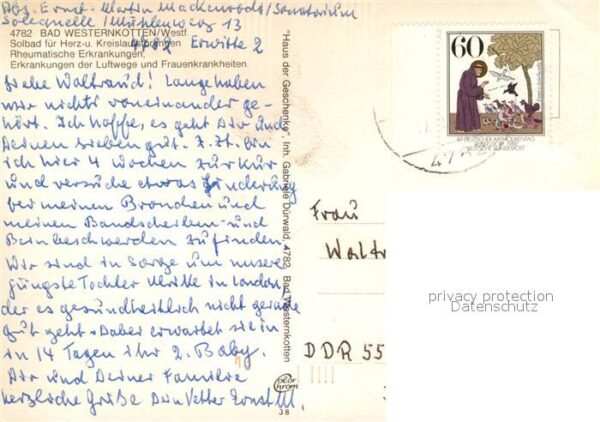 Abs. Ernst-Martin Mackenrodt/Sanatorium
Solequelle/Mühlenweg 13
4782 BAD WESTERNKOTTEN/Westf.
4782 Erwitte 2
Solbad für Herz- u. Kreislaufstörungen
Rheumatische Erkrankungen,
Erkrankungen der Luftwege und Frauenkrankheiten.
Liebe Waltraud! Lange haben
wir nichts voneinander ge-
hört. Ich hoffe, es geht Dir und
Deinen Lieben gut. Z. Zt. bin
ich hier 4 Wochen zur Kur
und versuche etwas Linderung
bei meinen Bronchen und
meinen Bandscheiben- und
Beinbeschwerden zu finden.
Wir sind in Sorge um unsere
jüngste Tochter Ulrike in London,
der es gesundheitlich nicht gerade
gut geht. Dabei erwartet sie in
in 14 Tagen ihr 2. Baby.
Dir und Deiner Familie
herzliche Grüße Dein Vetter Ernst M.
"Haus der Geschenke", Inh. Gabriele Dürwald, 4782 Bad Westernkotten
38
60
87. DEUTSCHER KATHOLIKENTAG
DÜSSELDORF 1982
DEUTSCHE BUNDESPOST
Frau
Waltr
DDR 55
privacy protection
Datenschutz